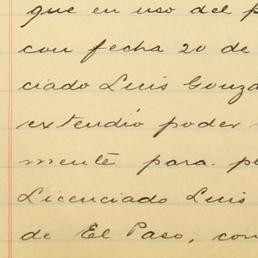 que en uso del p
con fecha 20 de
ciado Luis Gonza
extendió poder
mente para. p
Licenciado Luis
de El Paso, con